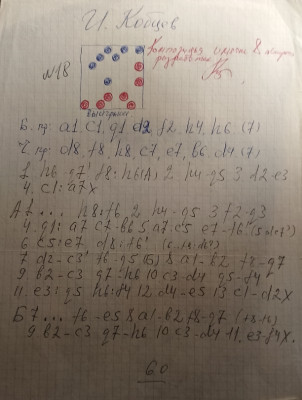 И. Кобцев
Композиция имеет 8
разработок
№18
выигрыш
Б. пр: a1, c1, g1 d2 f2 h4, h6 (7)
Ч. пр: d8, f8, h8, c7, e7, b6, d4 (7)
1. h6 g7' f8:h6(A) 2 h4-g5 3 d2-e3
4. c1:a7x
A1... h8:f6, 2 h4-g5 3 f2-g3
4. g1:a7 c7-b6 5 a7:c5 e7-f6'
6 c5:e7, d8:f6'
7 d2-c3' f6-g5(Б) 8 a1-b2 f8-g7
9. b2-c3 g7-h6 10 c3-d4 g5-f4'
11. e3:g5 h6:f4 12 d4-e5 13 c1-d2X
Б7... f6-e5 8 a1-b2 f8-g7
9. b2-c3 g7-h6 10 c3-d4 11. e3-f4X.
60